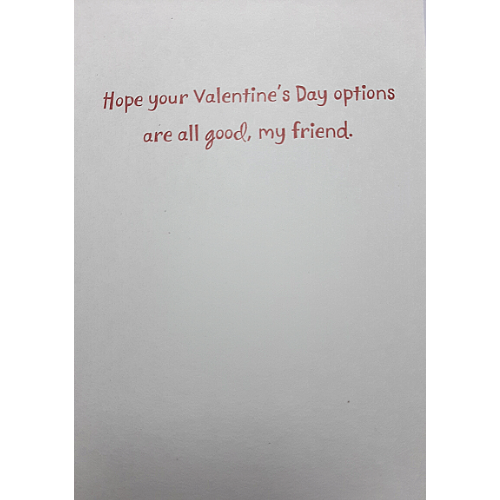 Hope your Valentine's Day options
are all good, my friend.